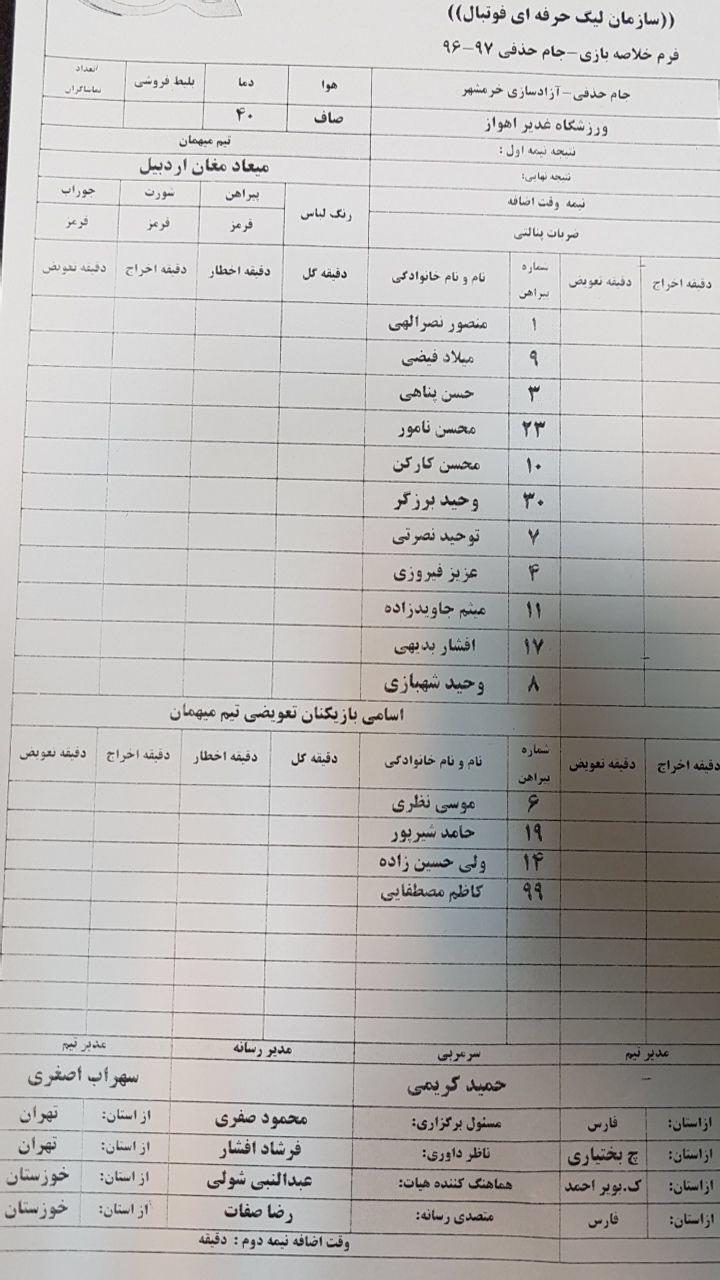 ((سازمان لیگ حرفه ای فوتبال))
فرم خلاصه بازی-جام حذفی ۹۷-۹۶
جام حذفی-آزادسازی خرمشهر هوا دما بلیط فروشی تعداد تماشاگران
ورزشگاه غدیر اهواز صاف ۴۰
نتیجه نیمه اول : تیم میهمان
نتیجه نهایی: میعاد مغان اردبیل
نیمه وقت اضافه رنگ لباس پیراهن شورت جوراب
ضربات پنالتی قرمز قرمز قرمز
دقیقه اخراج دقیقه تعویض شماره پیراهن نام و نام خانوادگی دقیقه گل دقیقه اخطار دقیقه اخراج دقیقه تعویض
۱ منصور نصرالهی
۹ میلاد فیضی
۳ حسن پناهی
۲۳ محسن نامور
۱۰ محسن کارکن
۳۰ وحید برزگر
۷ توحید نصرتی
۴ عزیز فیروزی
۱۱ میثم جاویدزاده
۱۷ افشار بدیهی
۸ وحید شهبازی
اسامی بازیکنان تعویضی تیم میهمان
دقیقه اخراج دقیقه تعویض شماره پیراهن نام و نام خانوادگی دقیقه گل دقیقه اخطار دقیقه اخراج دقیقه تعویض
۶ موسی نظری
۱۹ حامد شیرپور
۱۴ ولی حسین زاده
۹۹ کاظم مصطفایی
مدیر تیم سرمربی مدیر رسانه مدیر تیم
- حمید کریمی سهراب اصغری
ازاستان: فارس مسئول برگزاری: محمود صفری از استان: تهران
ازاستان: چ بختیاری ناظر داوری: فرشاد افشار از استان: تهران
ازاستان: ک.بویر احمد هماهنگ کننده هیات: عبدالنبی شولی از استان: خوزستان
ازاستان: فارس متصدی رسانه: رضا صفات از استان: خوزستان
وقت اضافه نیمه دوم : دقیقه